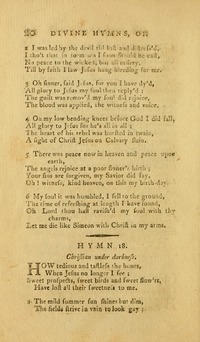 20 DIVINE HYMNS, OR
2 I was led by the devil till lost and distress'd,
No peace to the wicked, but all misery,
Till by faith I saw Jesus hung bleeding for me.
3 Oh sinner, said Jesus, for you I have dy'd,
All glory to Jesus my soul then reply'd;
The guilt was remov'd my soul did rejoice,
The blood was applied, the witness and voice.
4 On my low bending knees before God I did fall,
All glory to Jesus for he's all in all;
The heart of his rebel was bursted in twain,
A sight of Christ Jesus on Calvary slain.
5 There was peace now in heaven and peace upon
earth,
The angels rejoice at a poor sinner's birth;
Your sins are forgiven, my Saviour did say,
Oh! witness, kind heaven, on this my birth-day.
6 My soul it was humbled, I fell to the ground,
The time of refreshing at length I have found,
Oh Lord thou hast ravish'd my soul with thy
charms,
Let me die like Simeon with Christ in my arms.
HYMN 18.
Christian under darkness.
HOW tedious and tasteless the hours,
When Jesus no longer I see;
Sweet prospects, sweet birds and sweet flow'rs,
Have lost all their sweetness to me.
2 The mild summer sun shines but dim,
The fields strive in vain to look gay;